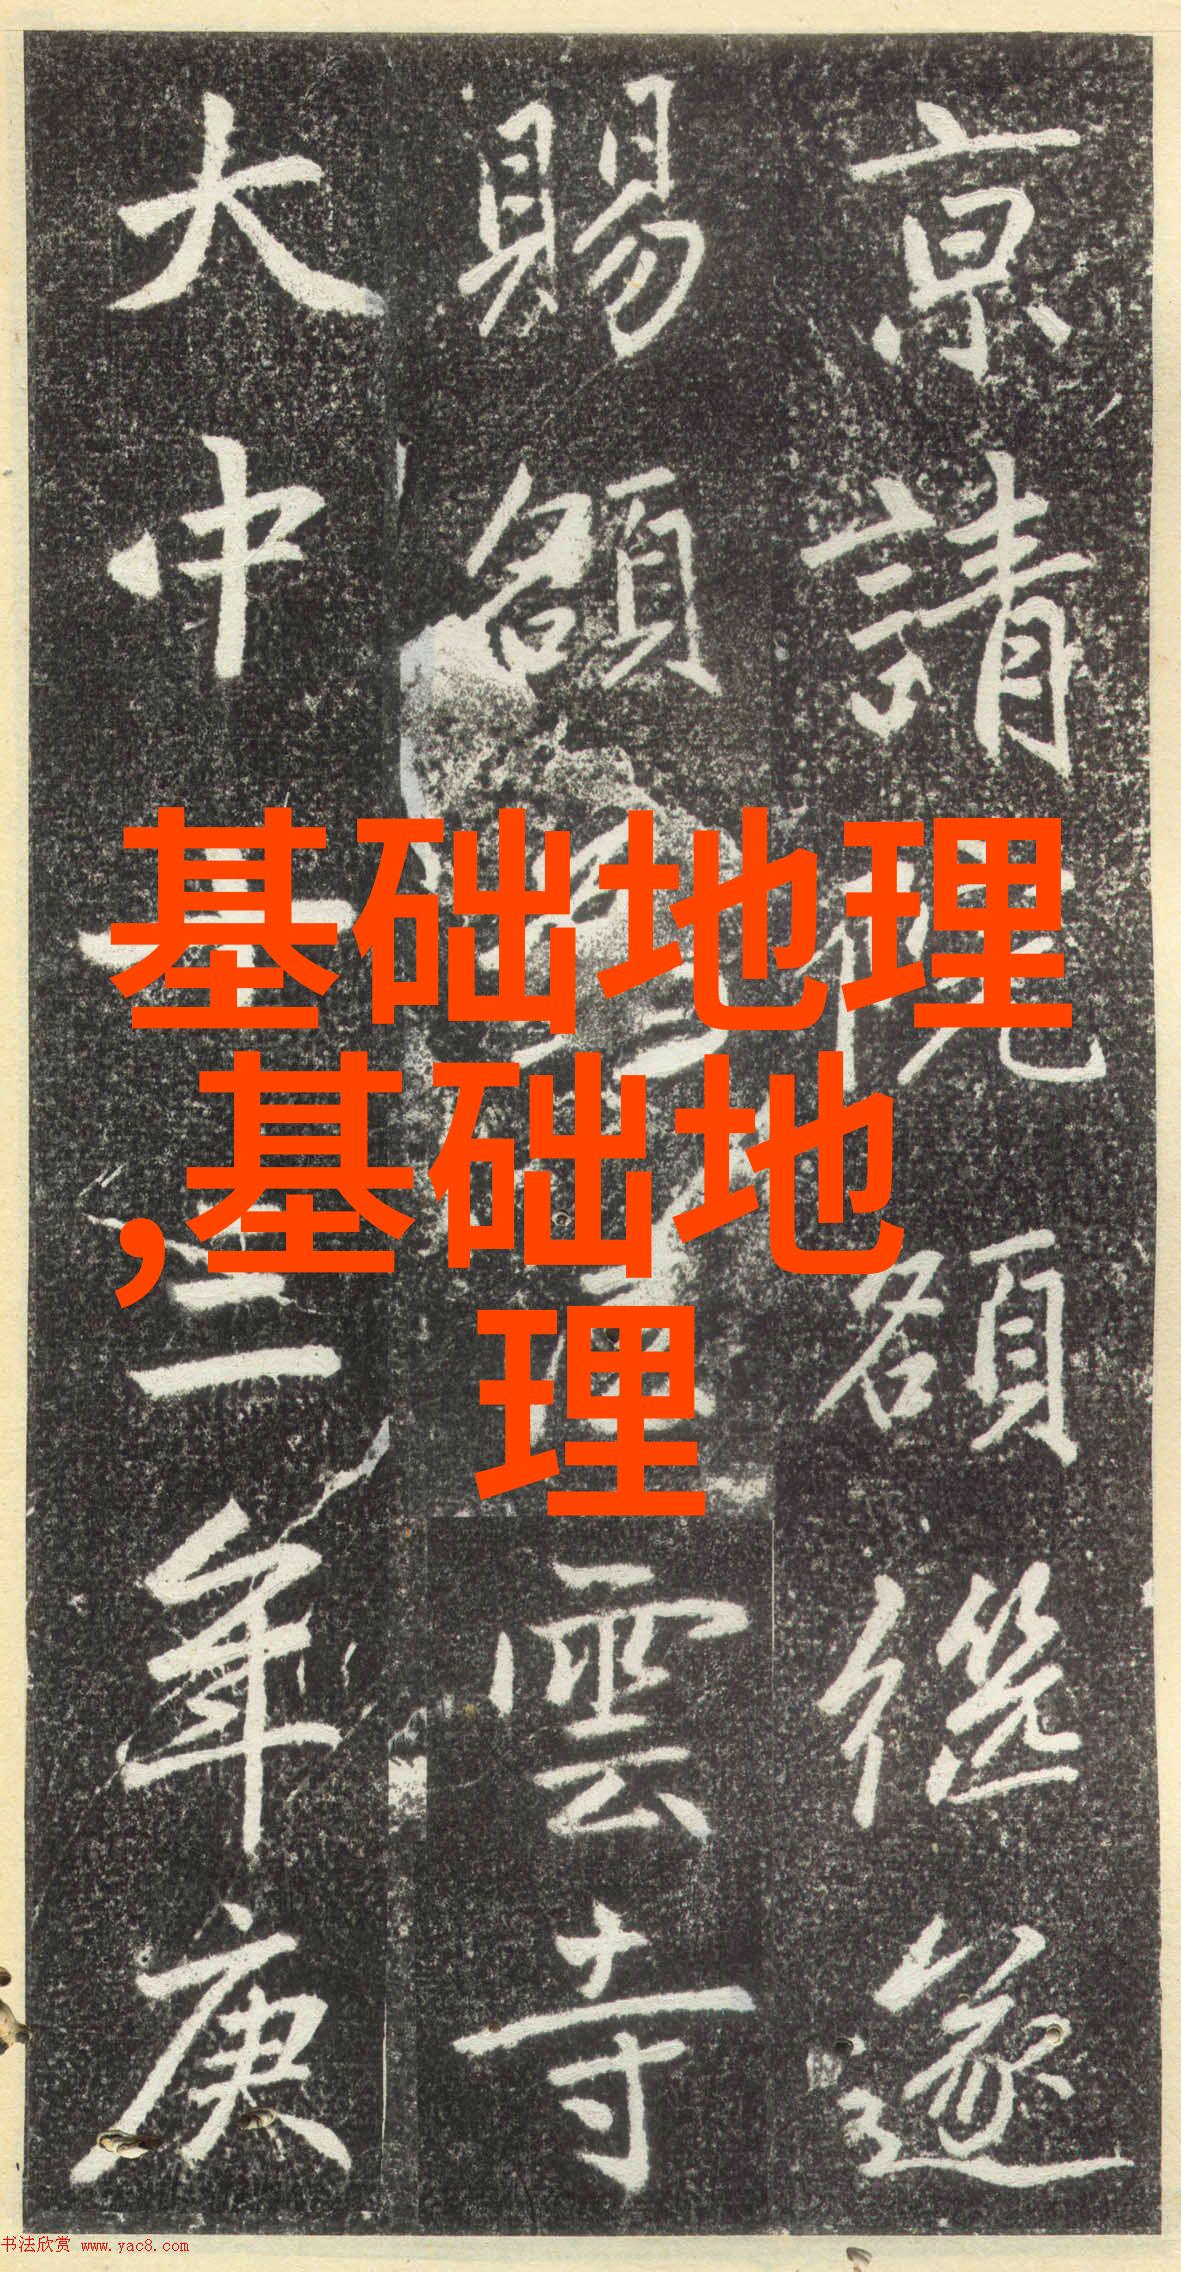 京請院額遂
賜額雲寺
大中十三年庚
基础地理
,基础地
理
书法欣赏 www.yac8.com